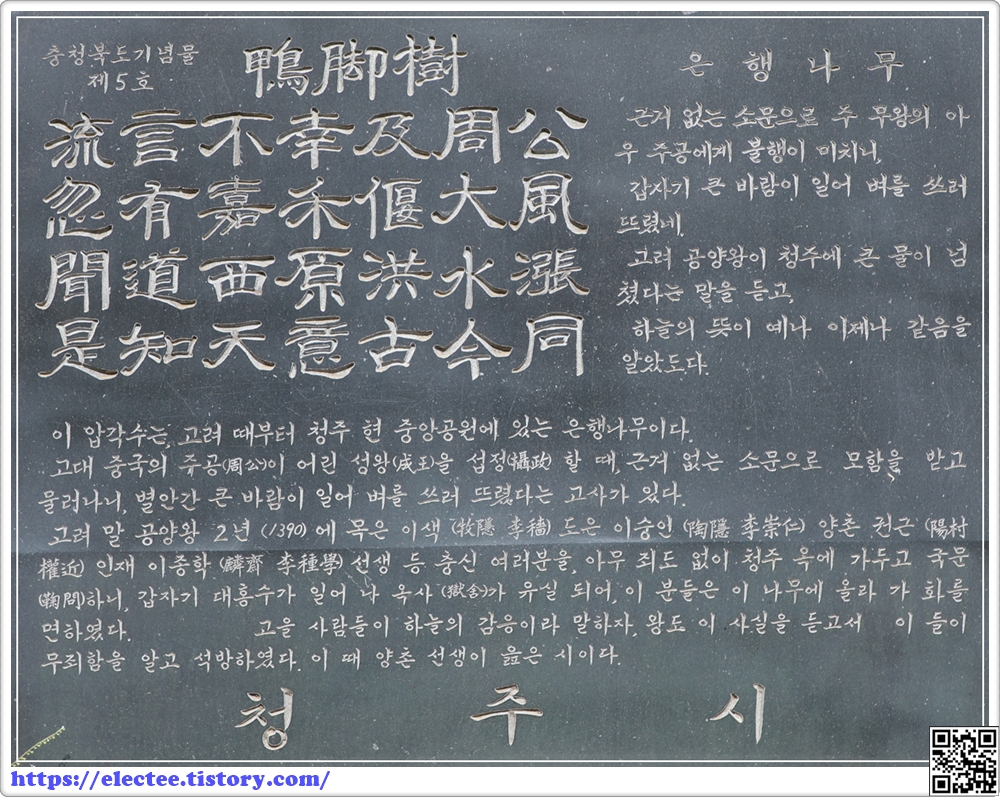 충청북도기념물
제5호
鴨脚樹
流言不幸及周公
忽有嘉禾偃大風
聞道西原洪水漲
是知天意古今同
은 행 나 무
근거 없는 소문으로 주 무왕의 아
우 주공에게 불행이 미치니,
갑자기 큰 바람이 일어 벼를 쓰러
뜨렸네.
고려 공양왕이 청주에 큰 물이 넘
쳤다는 말을 듣고,
하늘의 뜻이 예나 이제나 같음을
알았도다.
이 압각수는, 고려 때부터 청주 현 중앙공원에 있는 은행나무이다.
고대 중국의 주공(周公)이 어린 성왕(成王)을 섭정(攝政) 할 때, 근거 없는 소문으로 모함을 받고
물러나니, 별안간 큰 바람이 일어 벼를 쓰러 뜨렸다는 고사가 있다.
고려 말 공양왕 2년 (1390) 에 목은 이색 (牧隱 李穡) 도은 이숭인 (陶隱 李崇仁) 양촌 권근 (陽村
權近) 인재 이종학 (麟齋 李種學) 선생 등 충신 여러분을, 아무 죄도 없이 청주 옥에 가두고 국문
(鞠問)하니, 갑자기 대홍수가 일어 나 옥사 (獄舍)가 유실 되어, 이 분들은 이 나무에 올라 가 화를
면하였다. 고을 사람들이 하늘의 감응이라 말하자, 왕도 이 사실을 듣고서 이 들이
무죄함을 알고 석방하였다. 이 때 양촌 선생이 읊은 시이다.
청 주 시
https://electee.tistory.com/